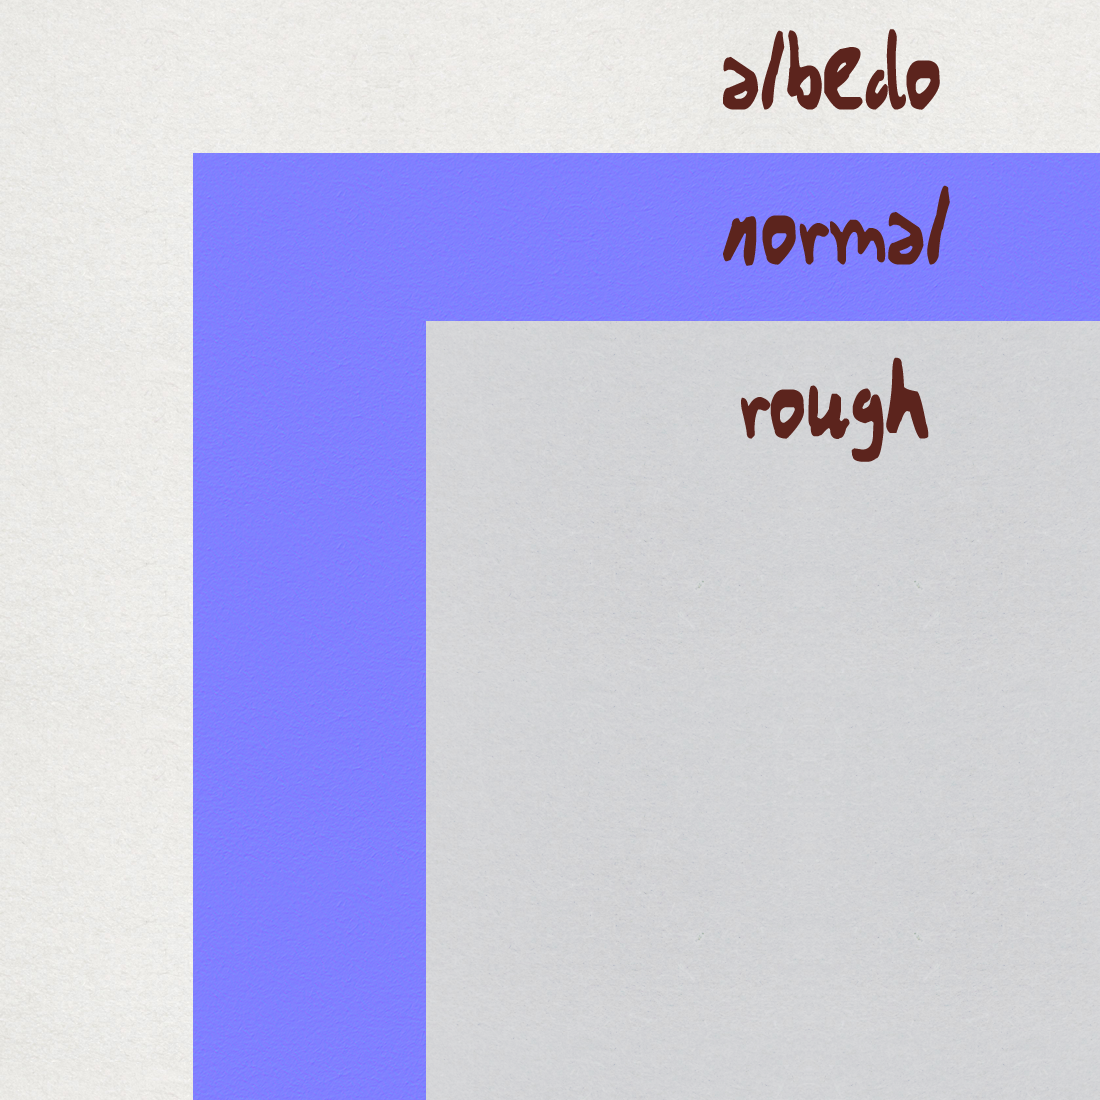 albedo
normal
rough